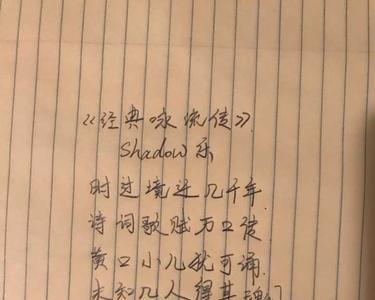 《经典咏流传》
Shadow乐
时过境迁几千年
诗词歌赋万口传
黄口小儿犹可诵
未知几人得其